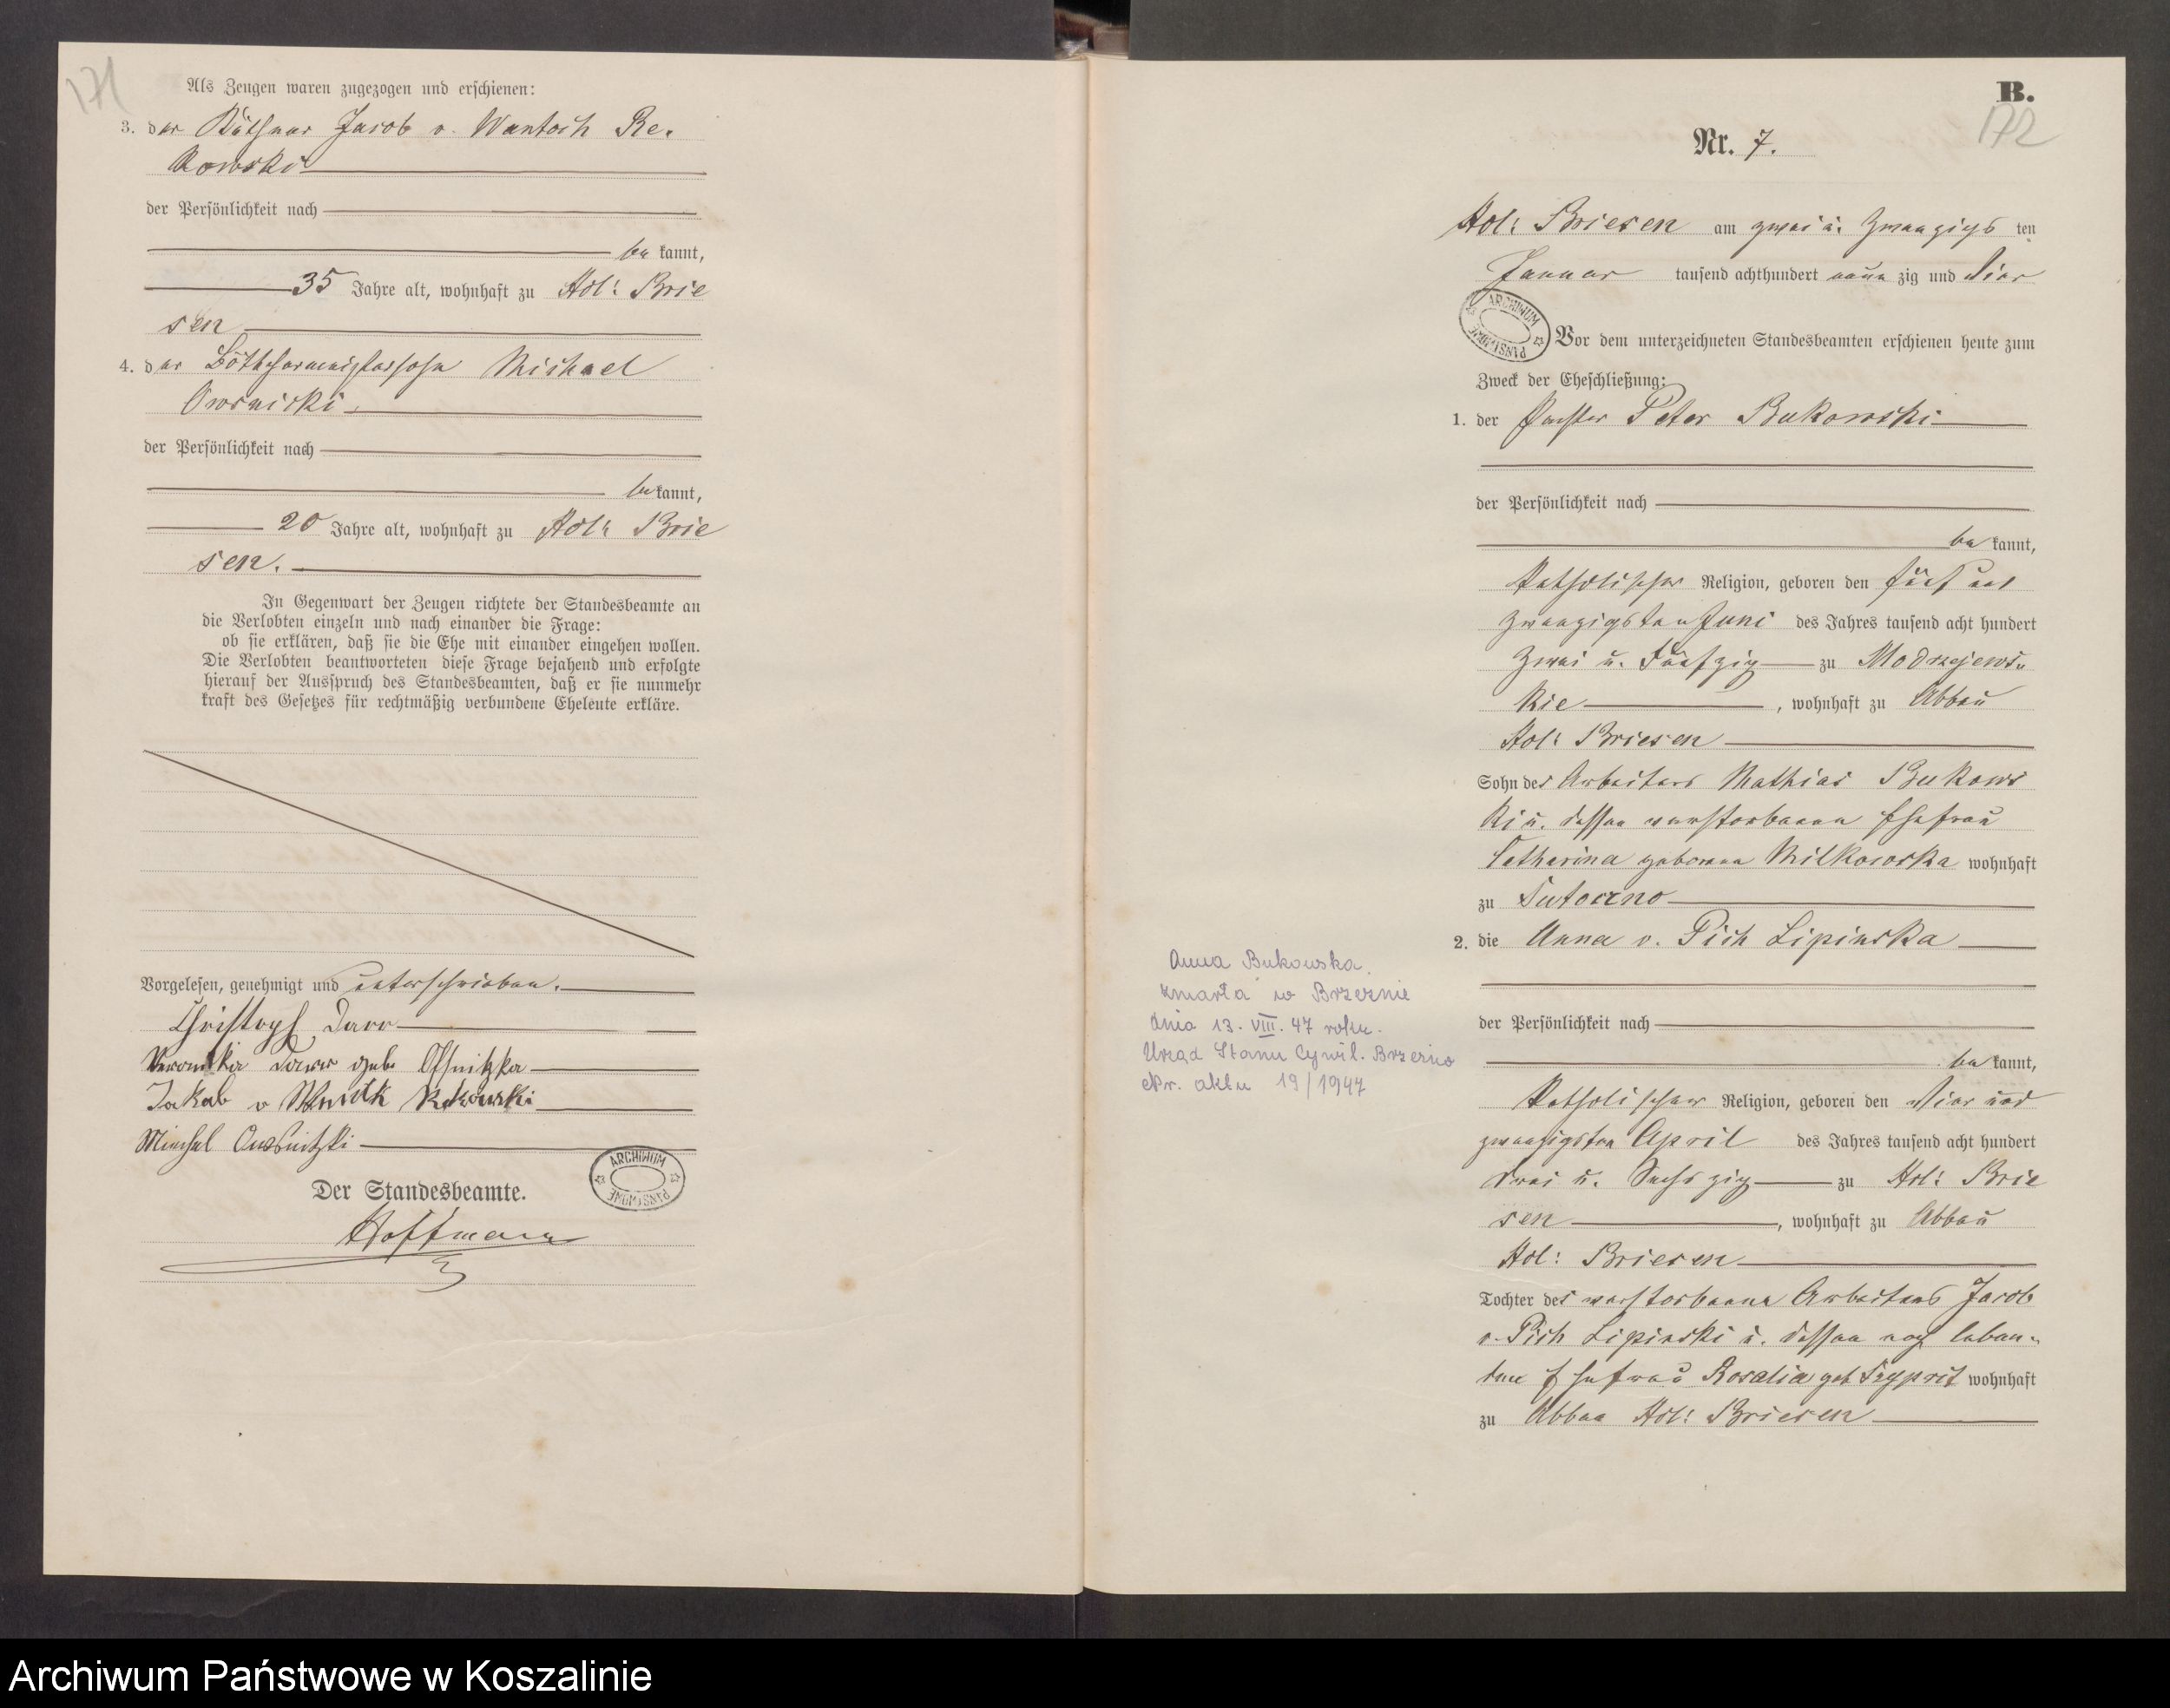 171
Als Zeugen waren zugezogen und erschienen:
3. der Käthner Jacob v. Wantoch Re-
kowski
der Persönlichkeit nach
be kannt,
35 Jahre alt, wohnhaft zu Adl: Brie
sen
4. der Böttchermeistersohn Michael
Owsnicki
der Persönlichkeit nach
be kannt,
20 Jahre alt, wohnhaft zu Adl: Brie
sen.
In Gegenwart der Zeugen richtete der Standesbeamte an
die Verlobten einzeln und nach einander die Frage:
ob sie erklären, daß sie die Ehe mit einander eingehen wollen.
Die Verlobten beantworteten diese Frage bejahend und erfolgte
hierauf der Ausspruch des Standesbeamten, daß er sie nunmehr
kraft des Gesetzes für rechtmäßig verbundene Eheleute erkläre.
Vorgelesen, genehmigt und unterschrieben.
Christoph Darr
Veronika Darr geb.
Jakob v
Der Standesbeamte.
Hoffmann
ARCHIWUM PAŃSTWOWE
B.
172
Nr. 7.
Adl: Briesen am zwei u. zwanzigs ten
Januar tausend achthundert neun zig und vier
ARCHIWUM PAŃSTWOWE
Vor dem unterzeichneten Standesbeamten erschienen heute zum
Zweck der Eheschließung:
1. der Pächter Peter Bukowski
der Persönlichkeit nach
be kannt,
katholischer Religion, geboren den fünf und
zwanzigsten Juni des Jahres tausend acht hundert
zwei u. Fünfzig zu Modrzejews-
kie, wohnhaft zu Abbau
Adl: Briesen
Sohn des Arbeiters Mathias Bukows
ki u. dessen verstorbenen Ehefrau
Catharina geborenen Milkowska wohnhaft
zu
2. die Anna v. Pich Lipinska
der Persönlichkeit nach
be kannt,
katholischer Religion, geboren den vier und
zwanzigsten April des Jahres tausend acht hundert
drei u. Sechs zig zu Adl: Brie
sen, wohnhaft zu Abbau
Adl: Briesen
Tochter des verstorbenen Arbeiters Jacob
v. Pich Lipinski u. dessen noch leben-
den Ehefrau Rosalia geb wohnhaft
zu Abbau Adl: Briesen
Anna Bukowska
zmarła w Brzeźnie
dnia 13. VIII. 47 roku.
Urząd Stanu Cywil. Brzeźno
Nr. aktu 19/1947
Archiwum Państwowe w Koszalinie